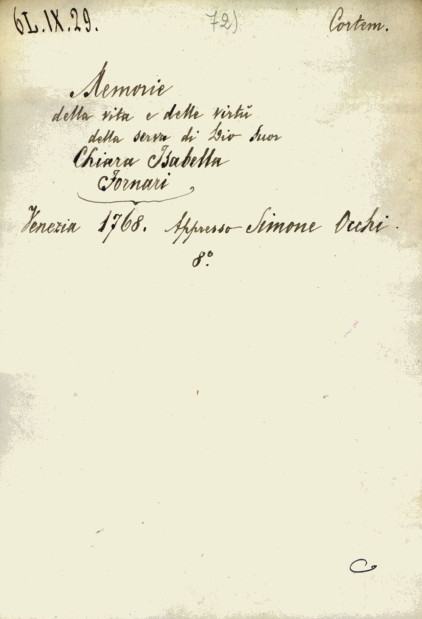 6L.IX.29. 72) Cortem.
Memorie
della vita e delle virtù
della serva di Dio Suor
Chiara Isabella
Fornari
Venezia 1768. Appresso Simone Occhi.
8º